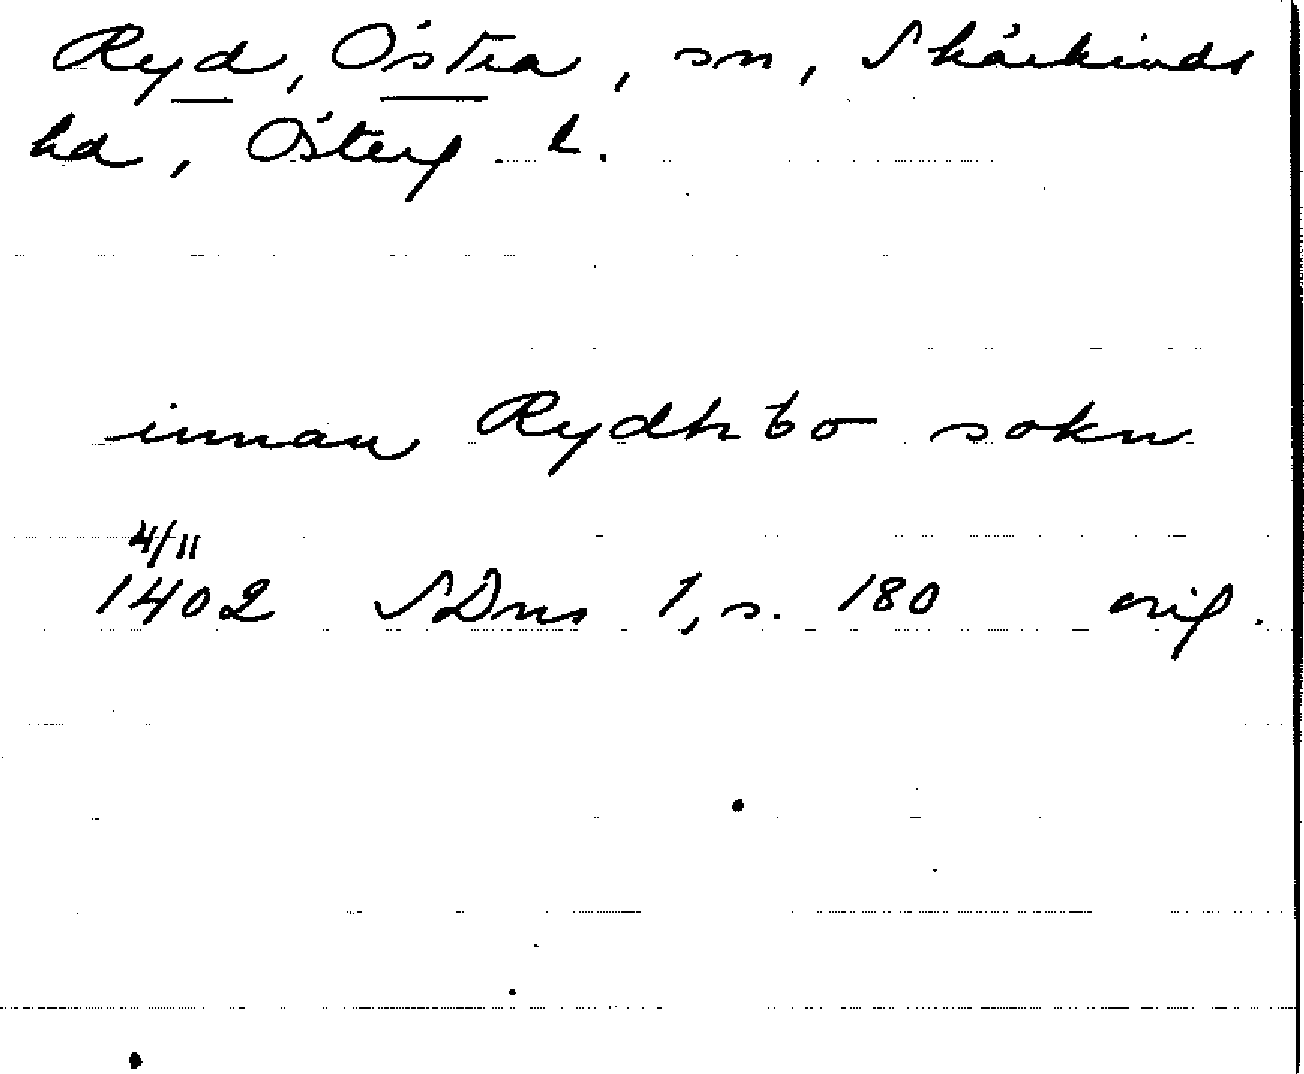 Ryd, Östra, sn, Skärkinds
hd, Österg l.
innan Rydhbo sokn
4/11
1402 SDns 1, s. 180 orig.